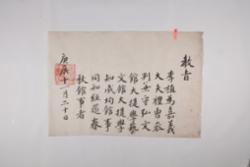 教旨
李植為嘉義
大夫禮曹參
判兼守弘文
館大提學藝
文館大提學
知成均館事
同知經筵春
秋館事者
庚辰十一月二十日